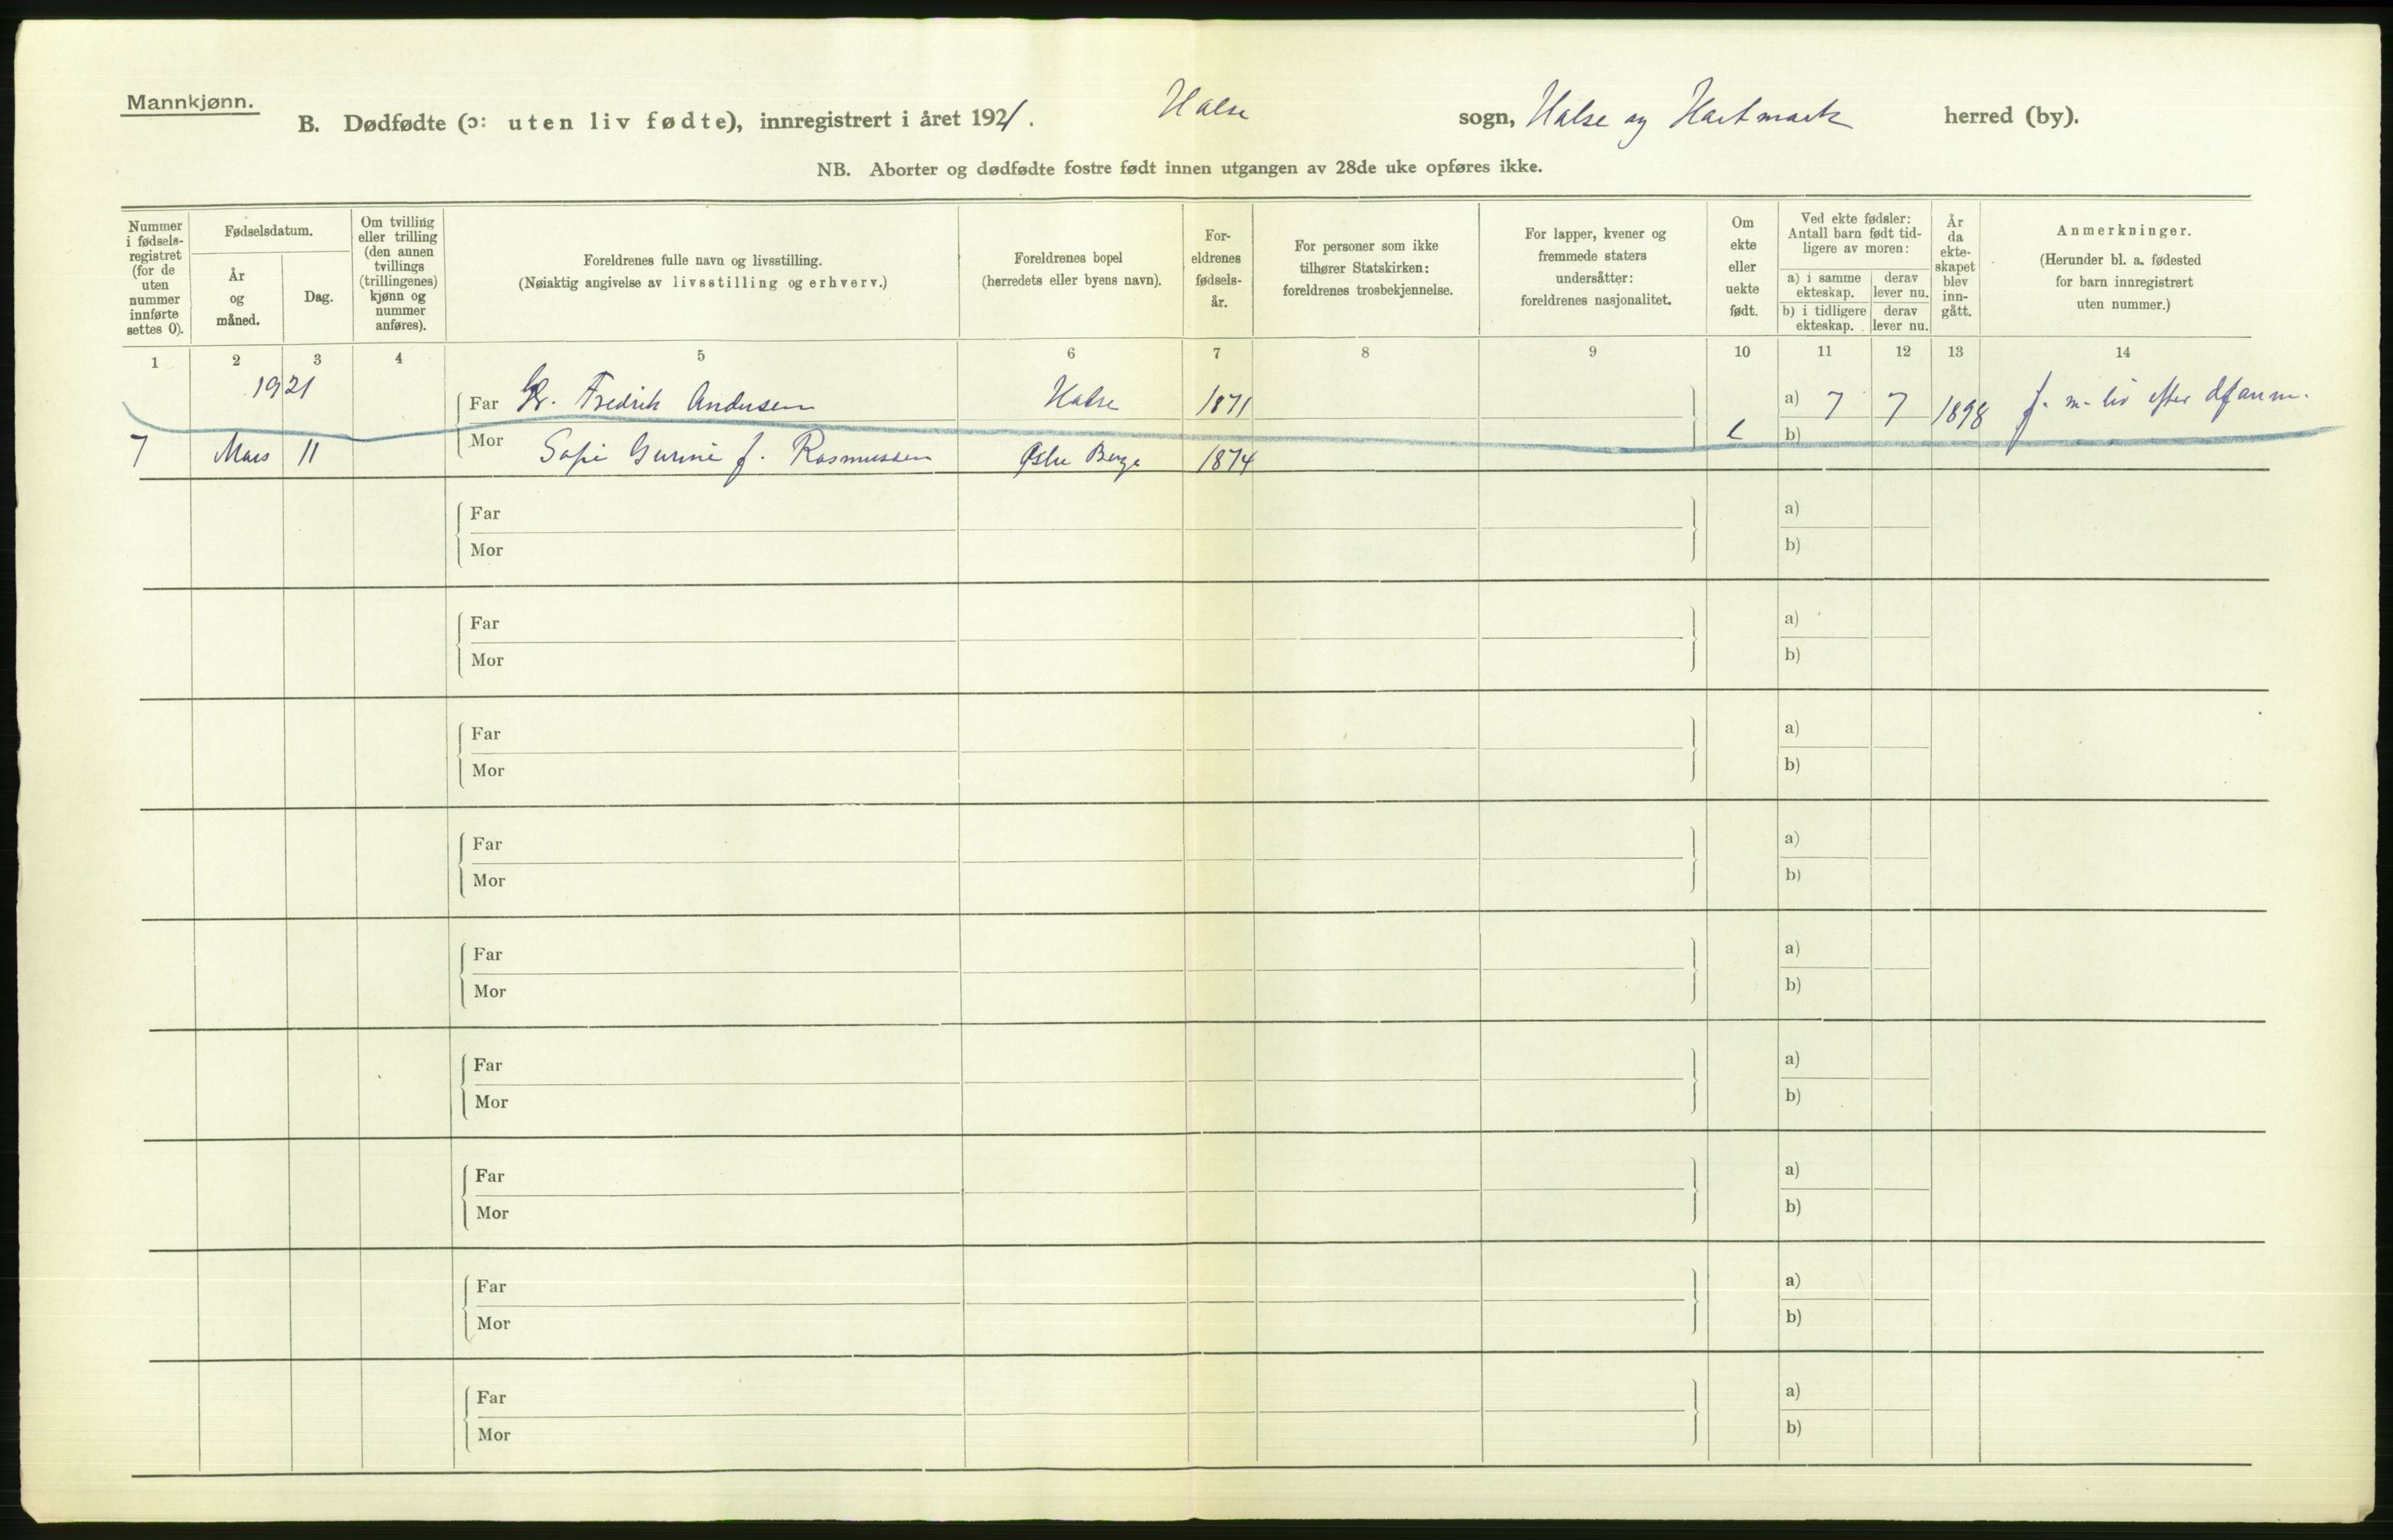 Mannkjønn.
B. Dødfødte (ɔ: uten liv fødte), innregistrert i året 1921. Halse sogn, Halse og Hartmark herred (by).
NB. Aborter og dødfødte fostre født innen utgangen av 28de uke opføres ikke.
Nummer i fødsels-registret (for de uten nummer innførte settes 0).
Fødselsdatum.
År og måned.
Dag.
Om tvilling eller trilling (den annen tvillings (trillingenes) kjønn og nummer anføres).
Foreldrenes fulle navn og livsstilling.
(Nøiaktig angivelse av livsstilling og erhverv.)
Foreldrenes bopel
(herredets eller byens navn).
For-eldrenes fødsels-år.
For personer som ikke tilhører Statskirken: foreldrenes trosbekjennelse.
For lapper, kvener og fremmede staters undersåtter: foreldrenes nasjonalitet.
Om ekte eller uekte født.
Ved ekte fødsler: Antall barn født tid-ligere av moren:
a) i samme ekteskap.
derav lever nu.
b) i tidligere ekteskap.
derav lever nu.
År da ekte-skapet blev inn-gått.
Anmerkninger.
(Herunder bl. a. fødested for barn innregistrert uten nummer.)
1 2 3 4 5 6 7 8 9 10 11 12 13 14
1921 Far Fredrik Andersen Halse 1871 a) 7 7 1898 f. m. liv efter dfanm.
7 Mars 11 Mor Sofie Gurine f. Rasmussen 1874 e b)
Far a)
Mor b)
Far a)
Mor b)
Far a)
Mor b)
Far a)
Mor b)
Far a)
Mor b)
Far a)
Mor b)
Far a)
Mor b)
Far a)
Mor b)
Far a)
Mor b)